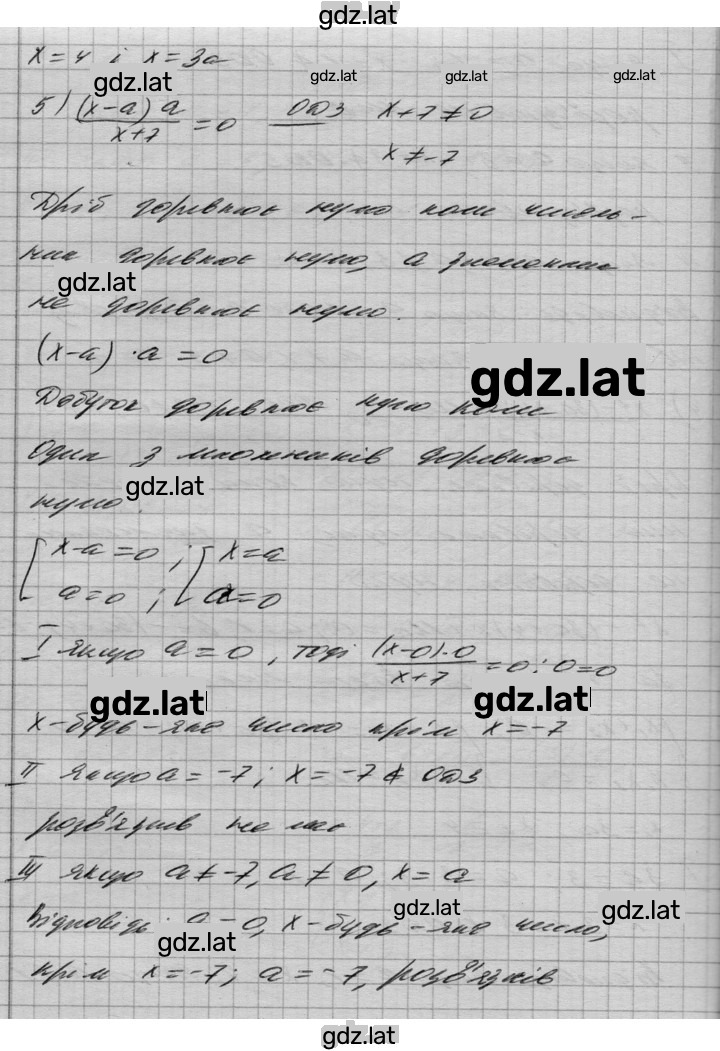 gdz.lat
x = 4 і x = 3a
gdz.lat gdz.lat gdz.lat gdz.lat
5) (x-a) a / x+7 = 0 ОДЗ x+7 ≠ 0
x ≠ -7
Дріб дорівнює нулю коли чисель-
ник дорівнює нулю, а знаменник
gdz.lat
не дорівнює нулю.
(x-a) · a = 0
gdz.lat
Добуток дорівнює нулю коли
один з множників дорівнює
gdz.lat
нулю.
[ x-a = 0 ; [ x = a
a = 0 ; a = 0
I якщо a = 0, тоді (x-0)·0 / x+7 = 0; 0 = 0
gdz.lat gdz.lat
x - будь-яке число крім x = -7
II якщо a = -7; x = -7 ∉ ОДЗ
розв'язків не має
III якщо a ≠ -7, a ≠ 0, x = a
gdz.lat gdz.lat
Відповідь: a - 0, x - будь-яке число,
gdz.lat
крім x = -7; a = -7, розв'язків
gdz.lat